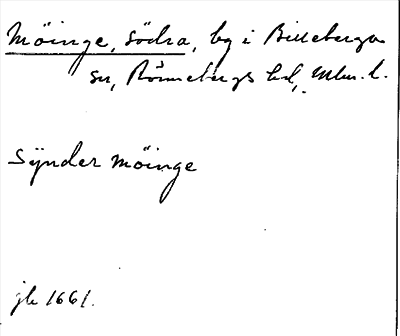 Möinge, södra, by i Billeberga
sn, Rönnebergs hd, Mlm. l.
Synder möinge
jb 1661.